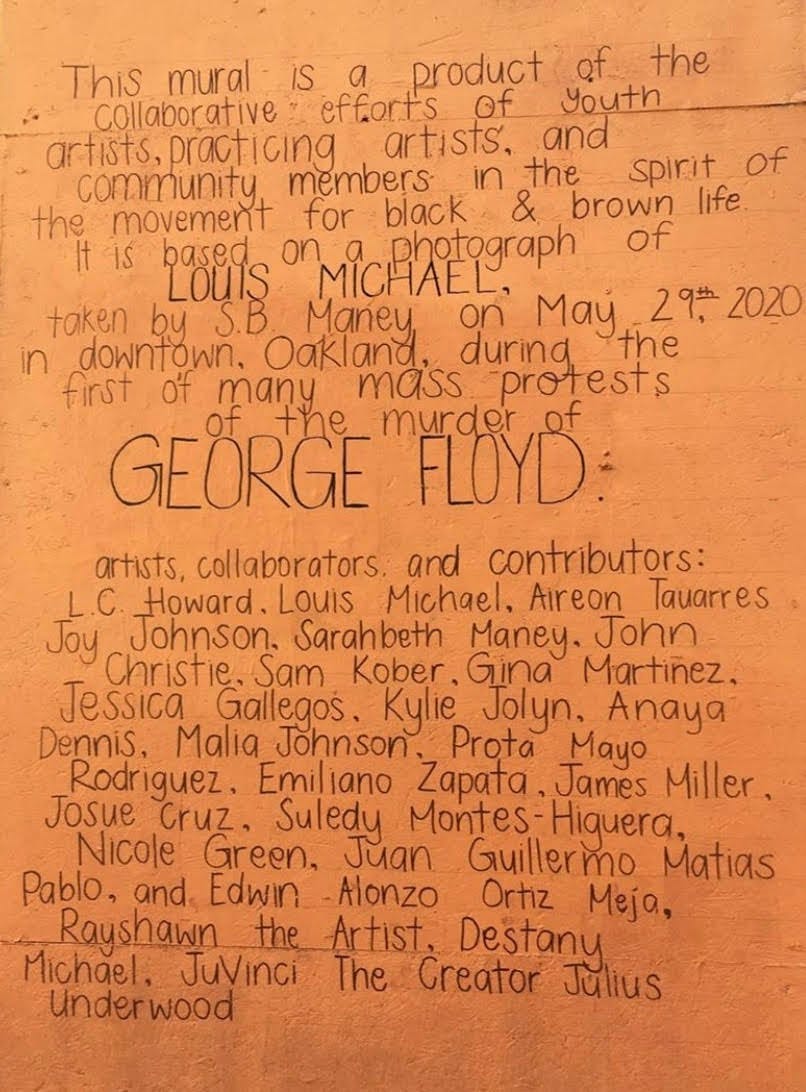 This mural is a product of the
collaborative efforts of youth
artists, practicing artists, and
community members in the spirit of
the movement for black & brown life.
It is based on a photograph of
LOUIS MICHAEL,
taken by S.B. Maney on May 29th, 2020
in downtown, Oakland, during the
first of many mass protests
of the murder of
GEORGE FLOYD.
artists, collaborators, and contributors:
L.C. Howard, Louis Michael, Aireon Tavarres
Joy Johnson, Sarahbeth Maney, John
Christie, Sam Kober, Gina Martinez,
Jessica Gallegos, Kylie Jolyn, Anaya
Dennis, Malia Johnson, Prota Mayo
Rodriguez, Emiliano Zapata, James Miller,
Josue Cruz, Suledy Montes-Higuera,
Nicole Green, Juan Guillermo Matias
Pablo, and Edwin Alonzo Ortiz Meja,
Rayshawn the Artist, Destany
Michael, JuVinci The Creator Julius
Underwood